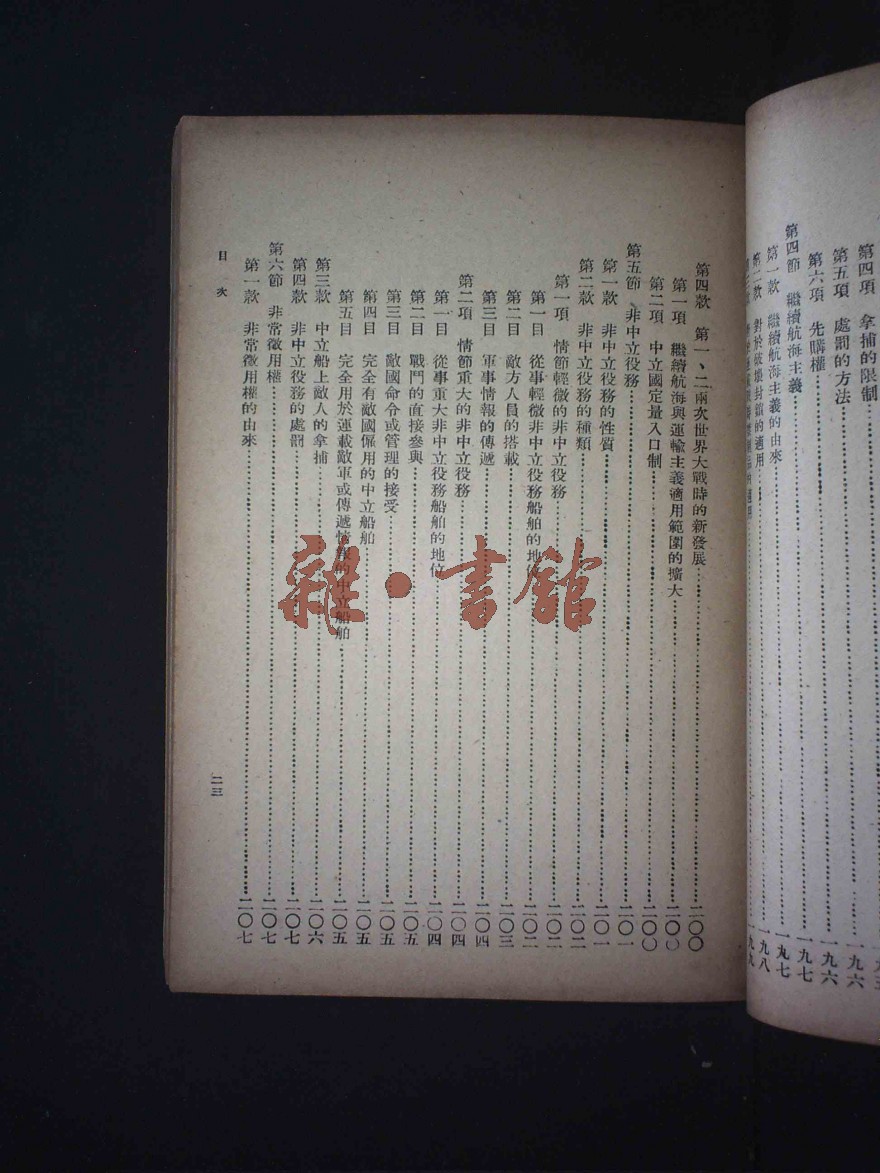 第四項 拿捕的限制
第五項 處罰的方法……一九六
第六項 先購權……一九六
第四節 繼續航海主義……一九七
第一款 繼續航海主義的由來……一九七
第二款 對於破壞封鎖的適用……一九八
一九九
第四款 第一、二兩次世界大戰時的新發展……二〇〇
第一項 繼續航海與運輸主義適用範圍的擴大……二〇〇
第二項 中立國定量入口制……二〇〇
第五節 非中立役務……二〇一
第一款 非中立役務的性質……二〇一
第二款 非中立役務的種類……二〇二
第一項 情節輕微的非中立役務……二〇二
第一目 從事輕微非中立役務船舶的地位……二〇二
第二目 敵方人員的搭載……二〇三
第三目 軍事情報的傳遞……二〇四
第二項 情節重大的非中立役務……二〇四
第一目 從事重大非中立役務船舶的地位……二〇四
第二目 戰鬥的直接參與……二〇五
第三目 敵國命令或管理的接受……二〇五
第四目 完全有敵國僱用的中立船舶……二〇五
第五目 完全用於運載敵軍或傳遞情報的中立船舶……二〇五
第三款 中立船上敵人的拿捕……二〇六
第四款 非中立役務的處罰……二〇七
第六節 非常徵用權……二〇七
第一款 非常徵用權的由來……二〇七
目次
二三
雜·書館